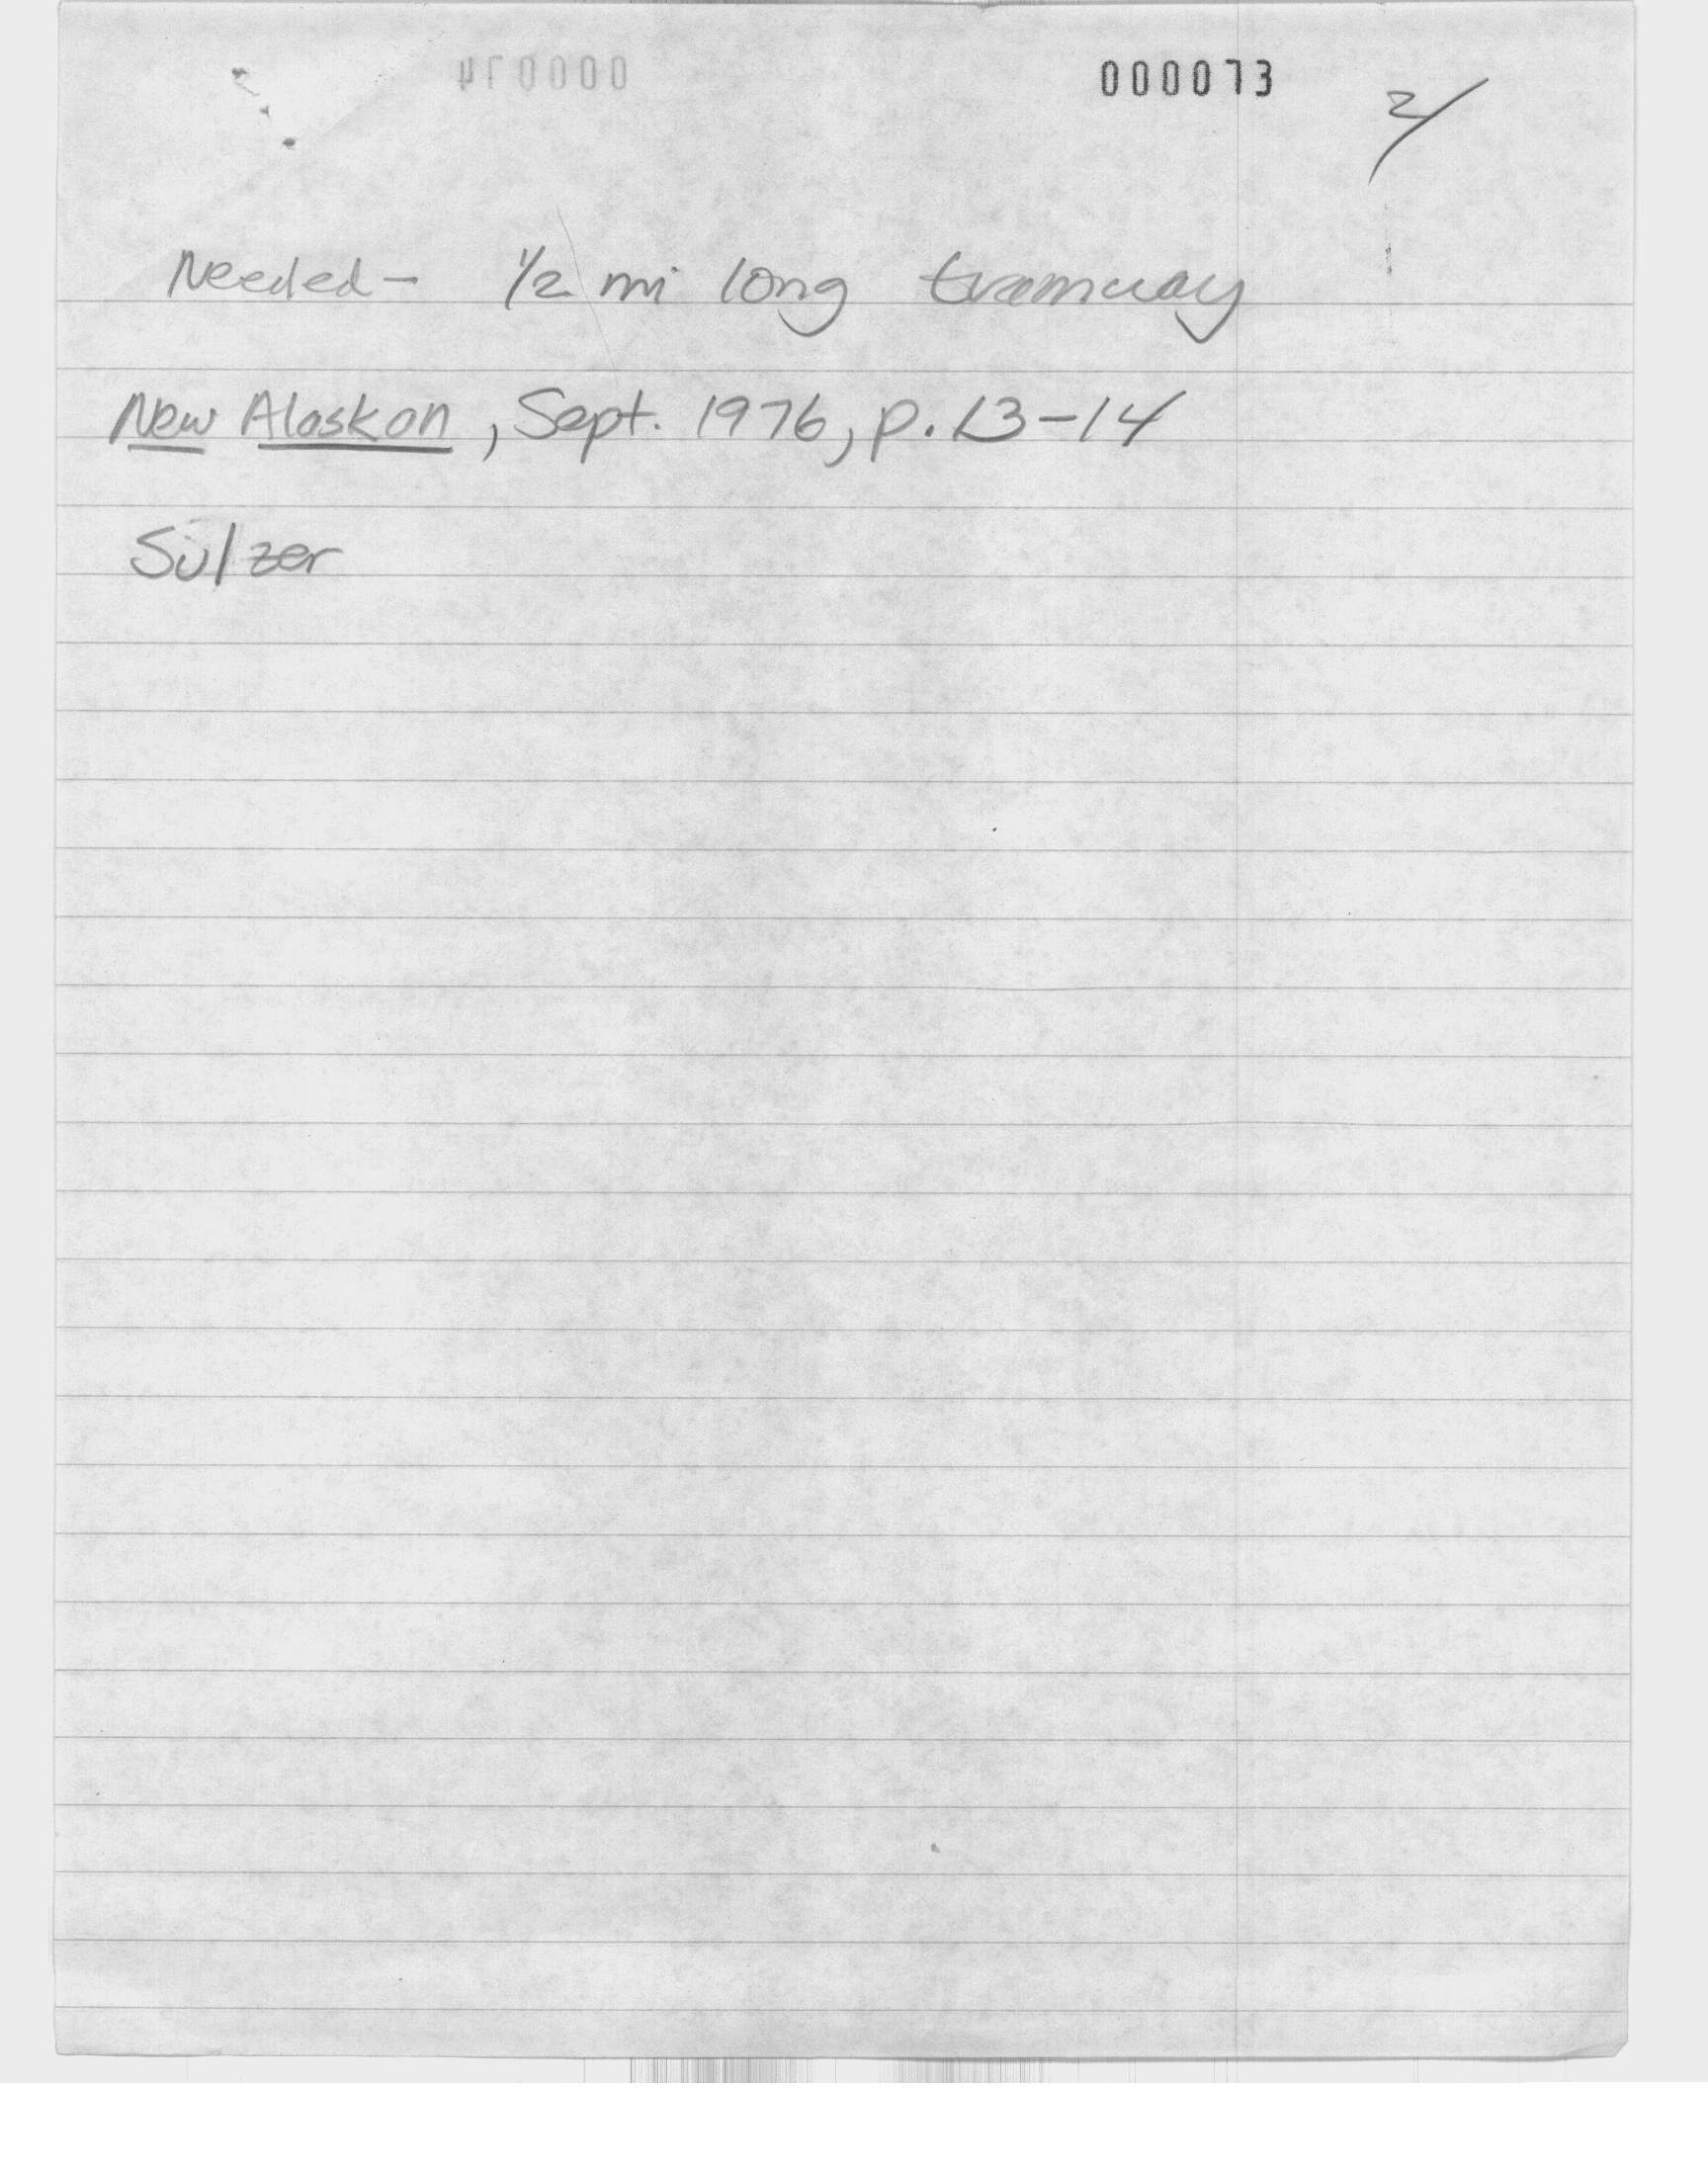 000073
2/
Needed- 1/2 mi long tramway
New Alaskan, Sept. 1976, p. 13-14
Sulzer